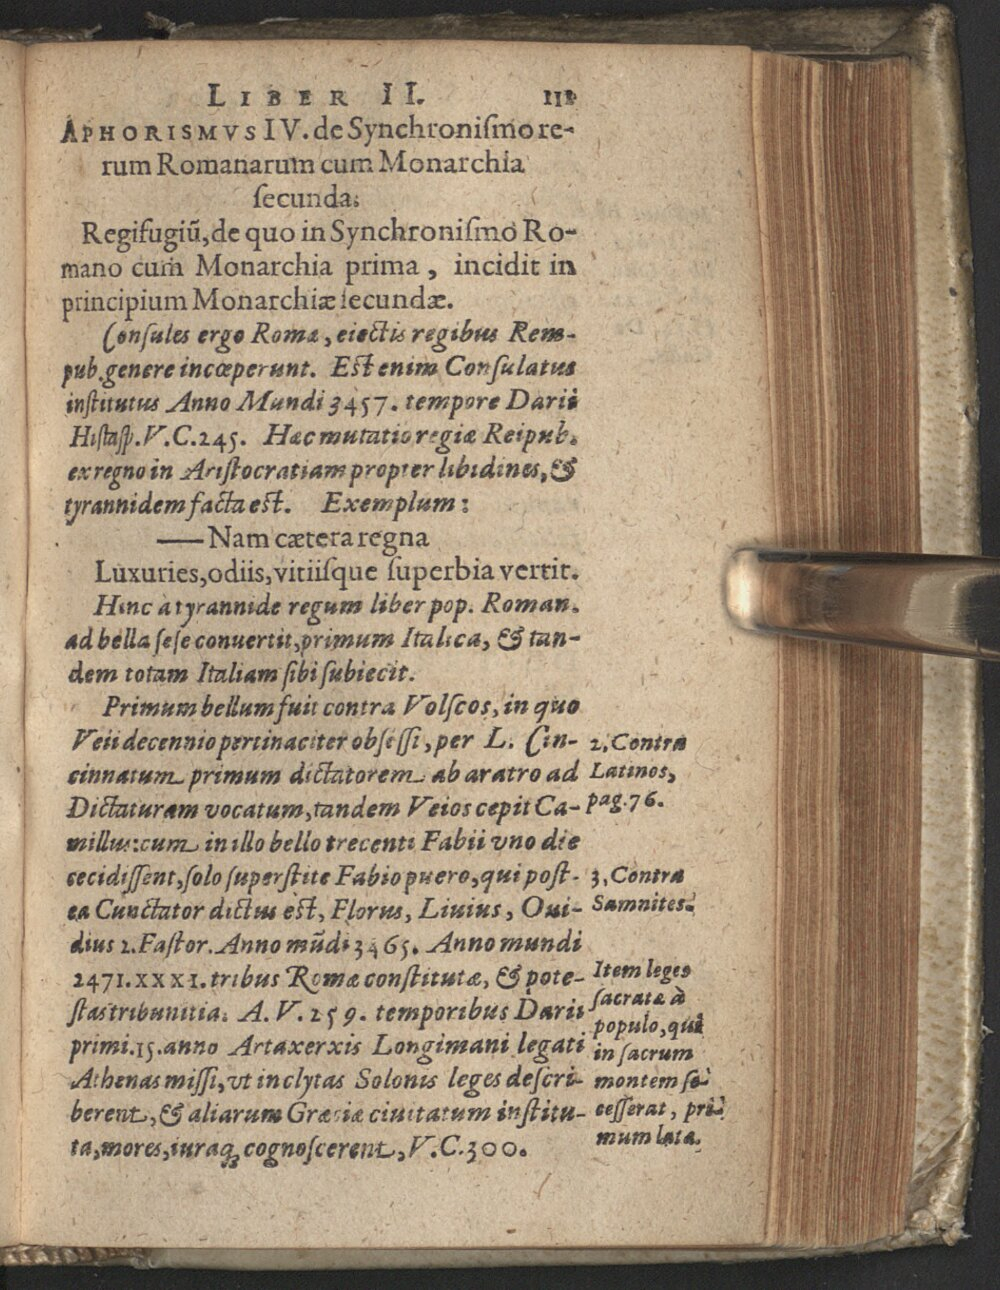 LIBER II. 111
APHORISMVS IV. de Synchroniſmo re-
rum Romanarum cum Monarchia
ſecunda.
Regifugiũ, de quo in Synchroniſmo Ro-
mano cum Monarchia prima, incidit in
principium Monarchiæ ſecundæ.
Conſules ergo Romæ, eiectis regibus Rem-
pub. genere incœperunt. Eſt enim Conſulatus
inſtitutus Anno Mundi 3457. tempore Darii
Hiſtaſp. V.C. 245. Hæc mutatio regiæ Reipub.
ex regno in Ariſtocratiam propter libidines, &
tyrannidem facta eſt. Exemplum:
—— Nam cætera regna
Luxuries, odiis, vitiiſque ſuperbia vertit.
Hinc à tyrannide regum liber pop. Roman.
ad bella ſeſe conuertit, primum Italica, & tan-
dem totam Italiam ſibi ſubiecit.
Primum bellum fuit contra Volſcos, in quo
Veii decennio pertinaciter obſeſſi, per L. Cin-
cinnatum primum dictatorem ab aratro ad
Dictaturam vocatum, tandem Veios cepit Ca-
millus: cum in illo bello trecenti Fabii vno die
cecidiſſent, ſolo ſuperſtite Fabio puero, qui poſt-
ea Cunctator dictus eſt, Florus, Liuius, Oui-
dius 2. Faſtor. Anno mũdi 3465. Anno mundi
2471. XXXI. tribus Romæ conſtitutæ, & pote-
ſtas tribunitia. A. V. 259. temporibus Darii
primi. 15. anno Artaxerxis Longimani legati
Athenas miſſi, vt inclytas Solonis leges deſcri-
berent, & aliarum Græciæ ciuitatum inſtitu-
ta, mores, iuraq; cognoſcerent, V.C. 300.
2. Contra
Latinos,
pag. 76.
3. Contra
Samnites.
Item leges
ſacratæ à
populo, qui
in ſacrum
montem ſe-
ceſſerat, pri-
mum latæ.